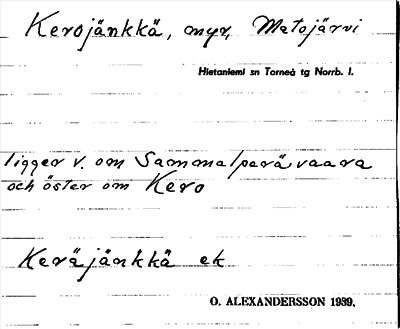 Kerojänkkä, myr, Matojärvi
Hietaniemi sn Torneå tg Norrb. l.
ligger v. om Sammalperävaara
och öster om Kero
Keräjänkkä ek
O. ALEXANDERSSON 1939.